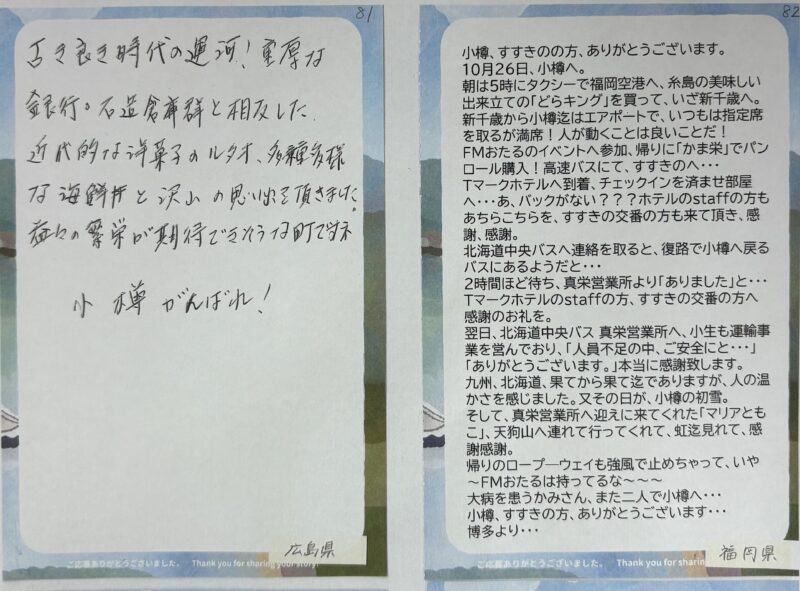 81
古き良き時代の運河！重厚な
銀行。石造倉庫群と相反した
近代的な洋菓子のルタオ、多種多様
な海鮮丼と沢山の思い出を頂きました。
益々の繁栄が期待できそうな町ですネ
小樽がんばれ！
広島県
ご応募ありがとうございました。 Thank you for sharing your story!
82
小樽、すすきのの方、ありがとうございます。
10月26日、小樽へ。
朝は5時にタクシーで福岡空港へ、糸島の美味しい
出来立ての「どらキング」を買って、いざ新千歳へ。
新千歳から小樽迄はエアポートで、いつもは指定席
を取るが満席！人が動くことは良いことだ！
FMおたるのイベントへ参加、帰りに「かま栄」でパン
ロール購入！高速バスにて、すすきのへ・・・
Tマークホテルへ到着、チェックインを済ませ部屋
へ・・・あ、バックがない？？？ホテルのstaffの方も
あちらこちらを、すすきの交番の方も来て頂き、感
謝、感謝。
北海道中央バスへ連絡を取ると、復路で小樽へ戻る
バスにあるようだと・・・
2時間ほど待ち、真栄営業所より「ありました」と・・・
Tマークホテルのstaffの方、すすきの交番の方へ
感謝のお礼を。
翌日、北海道中央バス 真栄営業所へ、小生も運輸事
業を営んでおり、「人員不足の中、ご安全にと・・・」
「ありがとうございます。」本当に感謝致します。
九州、北海道、果てから果て迄でありますが、人の温
かさを感じました。又その日が、小樽の初雪。
そして、真栄営業所へ迎えに来てくれた「マリアとも
こ」、天狗山へ連れて行ってくれて、虹迄見れて、感
謝感謝。
帰りのロープ―ウェイも強風で止めちゃって、いや
～FMおたるは持ってるな～～～
大病を患うかみさん、また二人で小樽へ・・・
小樽、すすきの方、ありがとうございます・・・
博多より・・・
福岡県
ご応募ありがとうございました。 Thank you for sharing